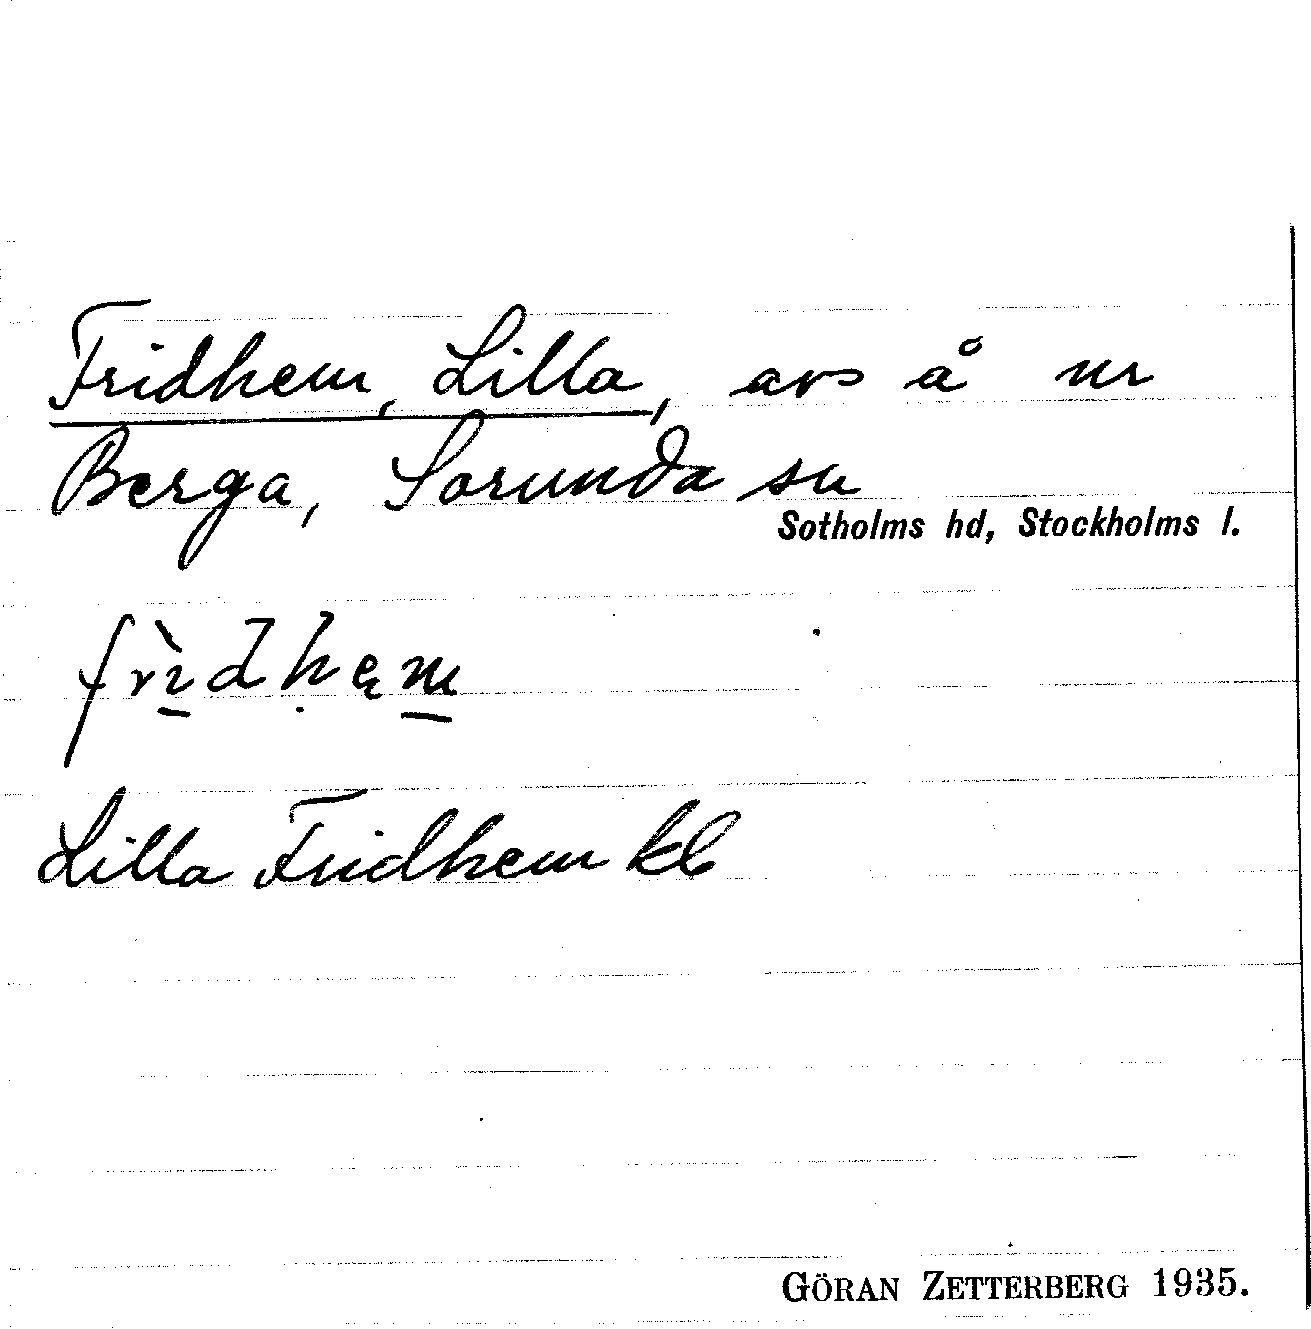 Fridhem, Lilla, avs å nr
Berga, Sorunda sn
Sotholms hd, Stockholms l.
frìdhęm
Lilla Fridhem kb
GÖRAN ZETTERBERG 1935.